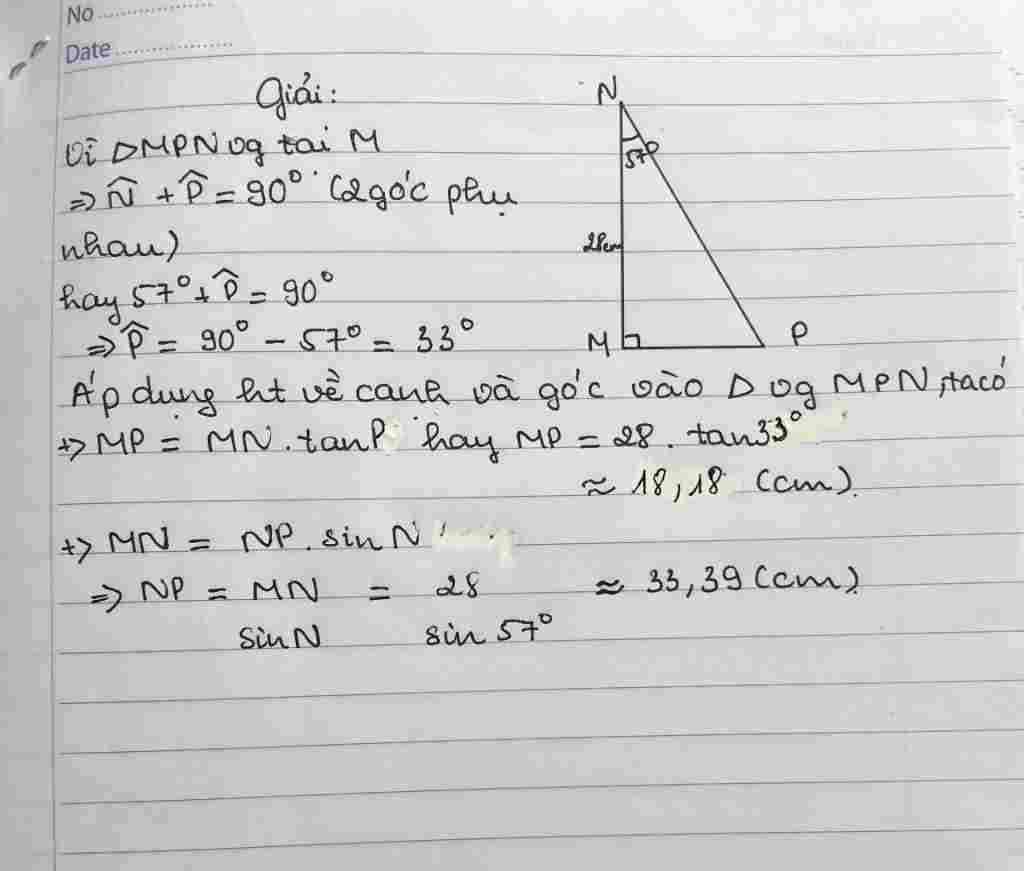 No
Date
Giải:
Vì ΔMPN vg tại M
=> N̂ + P̂ = 90° (2 góc phụ
nhau)
hay 57° + P̂ = 90°
=> P̂ = 90° - 57° = 33°
Áp dụng ht về cạnh và góc vào Δ vg MPN, ta có
+> MP = MN . tanP hay MP = 28 . tan33°
≈ 18,18 (cm).
+> MN = NP . sin N
=> NP = MN = 28 ≈ 33,39 (cm)
sin N sin 57°
N
57°
28cm
M
P